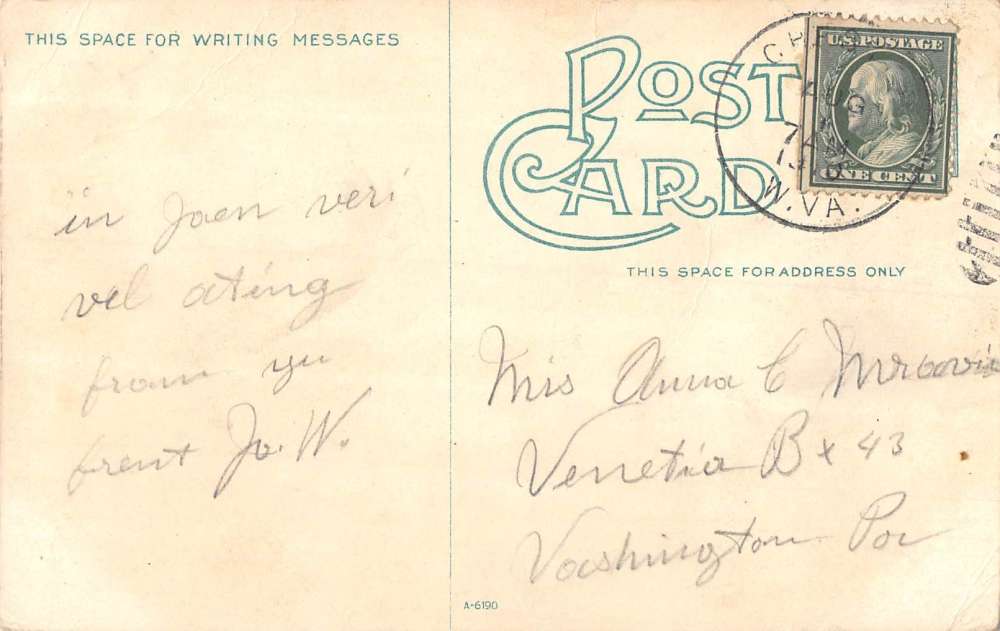 THIS SPACE FOR WRITING MESSAGES
POST
CARD
U.S. POSTAGE
ONE CENT
AUG
7 AM
W. VA.
THIS SPACE FOR ADDRESS ONLY
in Joen veri
vel ating
from yu
frent Jo. W.
Mis Anna C
Venetia Bx 43
Vashington Pa
A-6190